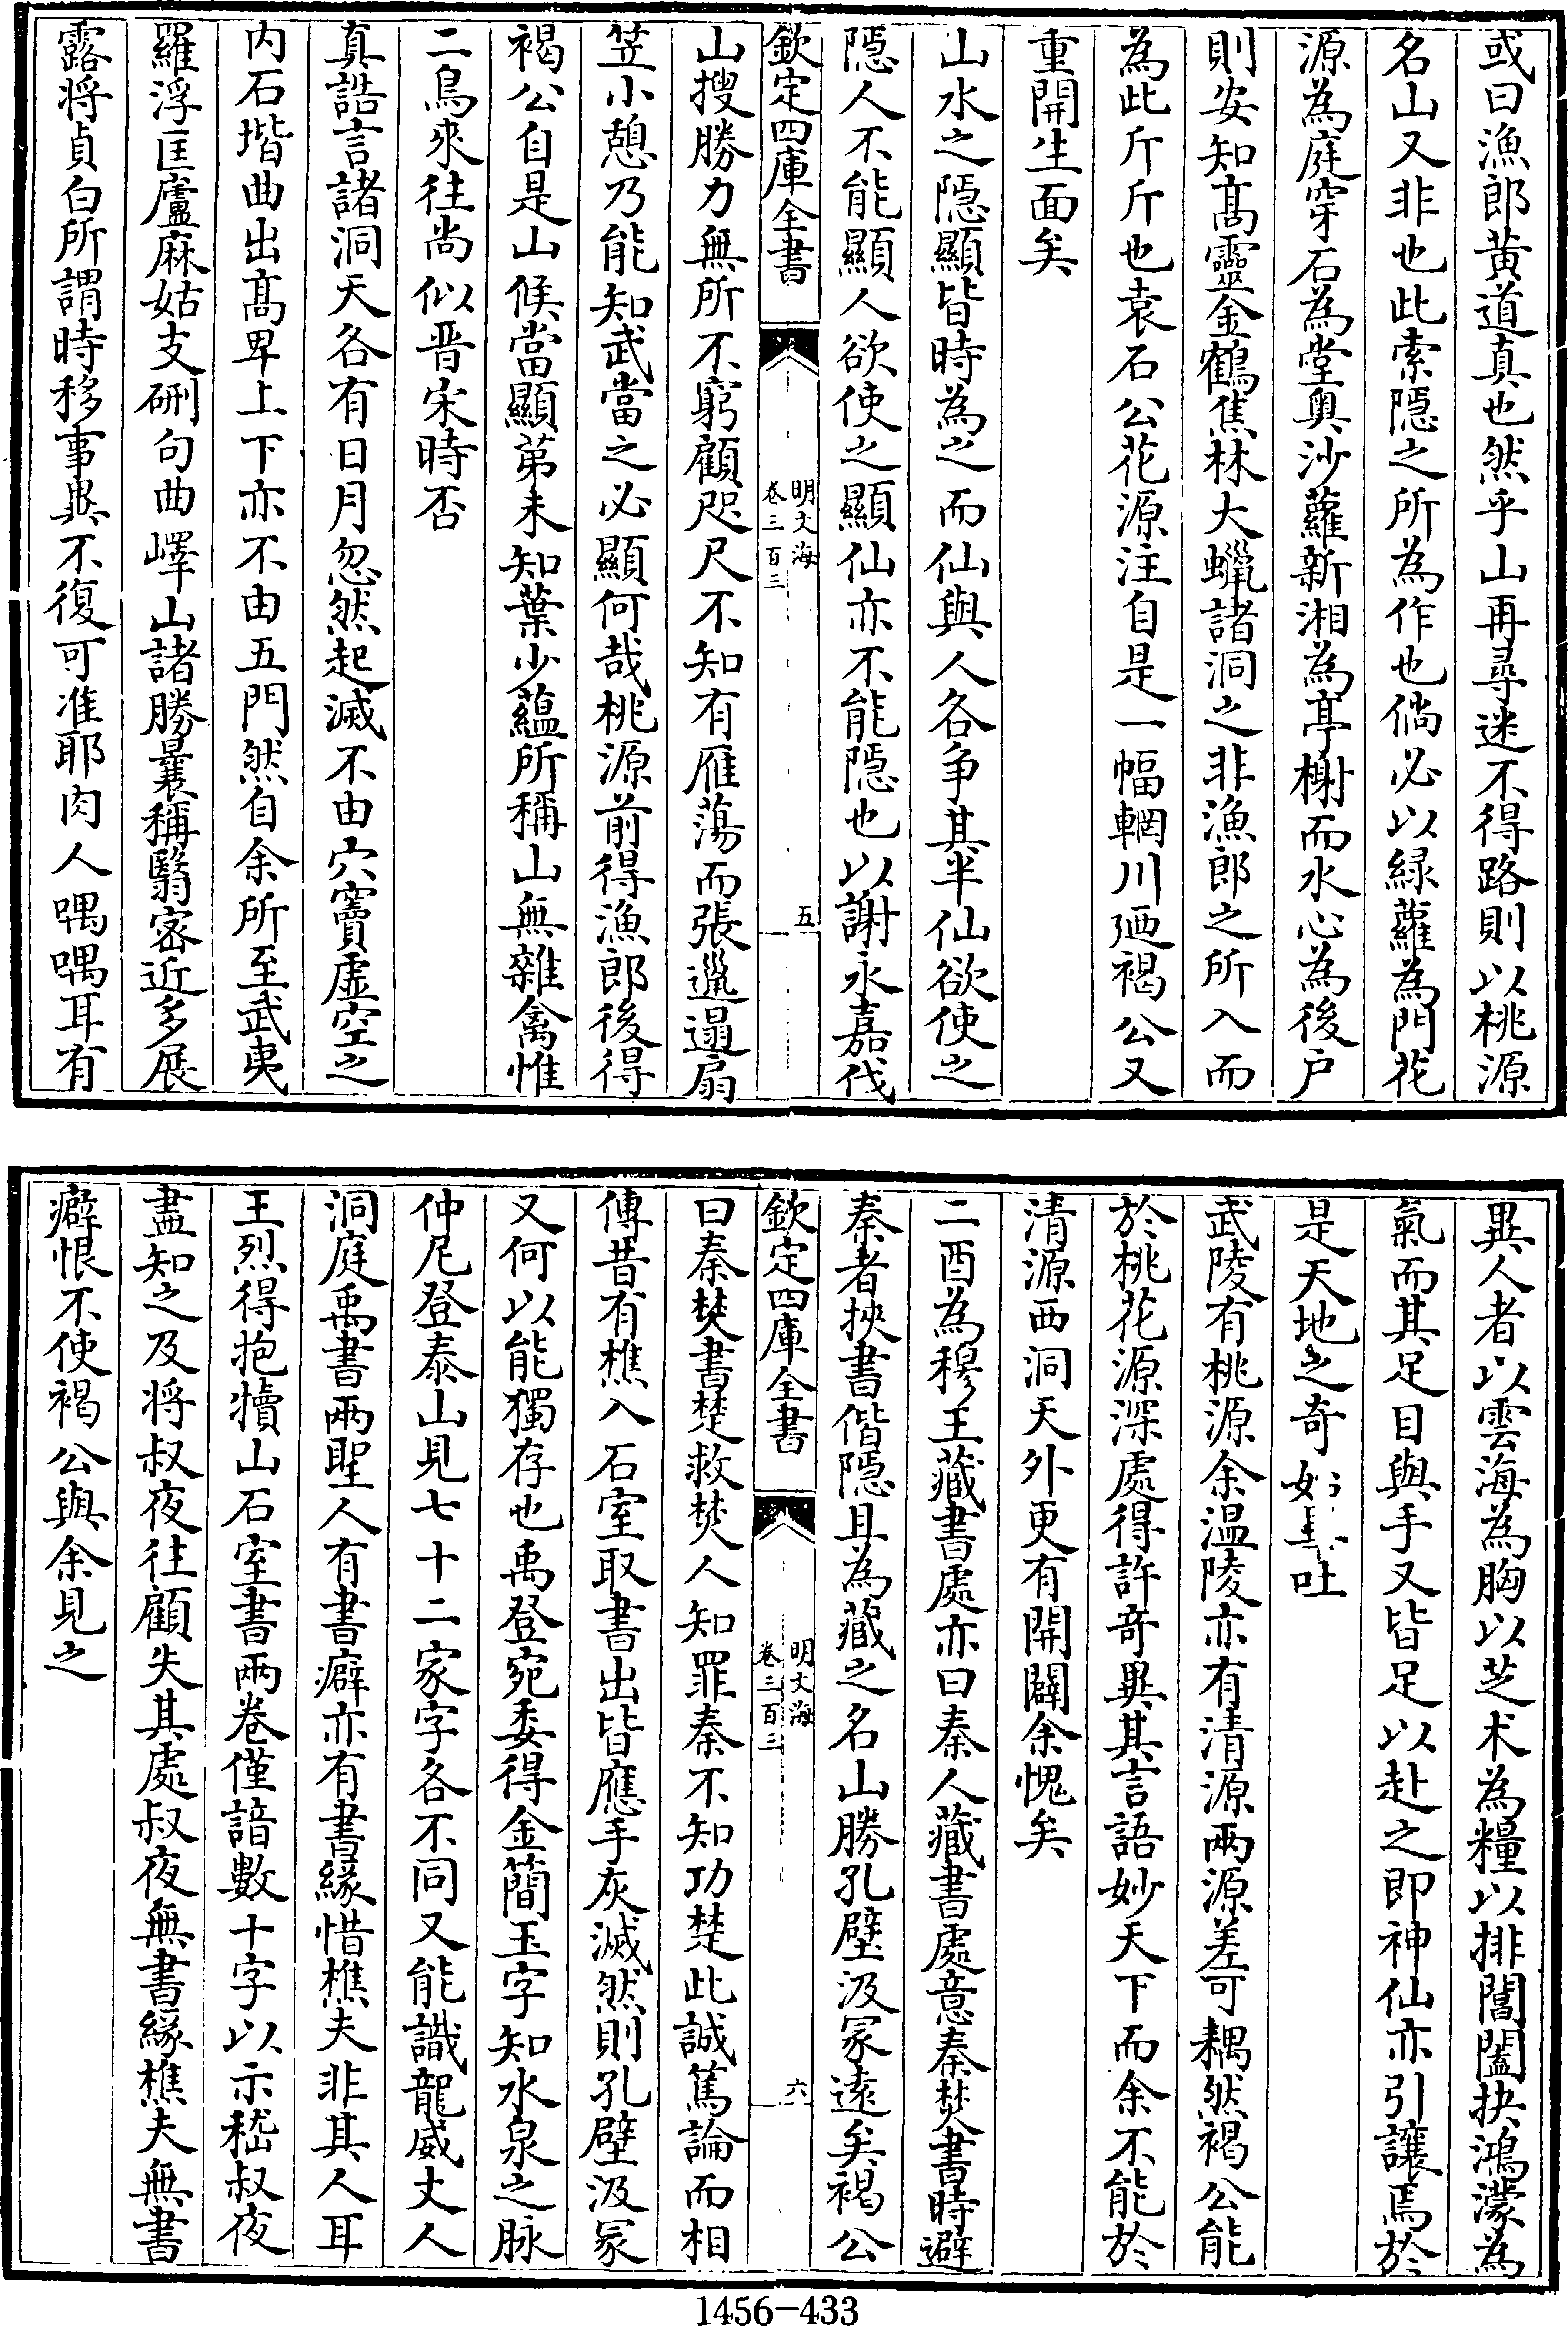 或曰漁郎黄道真也然乎山再尋迷不得路則以桃源
名山又非也此索隠之所為作也倘必以緑蘿為門花
源為庭穿石為堂奥沙蘿新湘為亭榭而水心為後户
則安知髙靈金鶴焦林大蠟諸洞之非漁郎之所入而
為此斤斤也袁石公花源注自是一幅輞川廼褐公又
重開生面矣
山水之隠顯皆時為之而仙與人各争其半仙欲使之
隠人不能顯人欲使之顯仙亦不能隠也以謝永嘉伐
欽定四庫全書
明文海
卷三百三
五
山搜勝力無所不窮顧咫尺不知有雁蕩而張邋遢扇
笠小憩乃能知武當之必顯何哉桃源前得漁郎後得
褐公自是山候當顯第未知葉少藴所稱山無雜禽惟
二鳥來往尚似晋宋時否
真誥言諸洞天各有日月忽然起滅不由穴竇虚空之
内石堦曲出髙卑上下亦不由五門然自余所至武夷
羅浮匡廬麻姑支硎句曲嶧山諸勝曩稱翳宻近多展
露将貞白所謂時移事異不復可准耶肉人喁喁耳有
異人者以雲海為胸以芝术為糧以排閶闔抉鴻濛為
氣而其足目與手又皆足以赴之即神仙亦引讓焉於
是天地之奇始畢吐
武陵有桃源余温陵亦有清源兩源差可耦然褐公能
於桃花源深處得許奇異其言語妙天下而余不能於
清源西洞天外更有開闢余愧矣
二酉為穆王藏書處亦曰秦人藏書處意秦焚書時避
秦者挾書偕隠且為藏之名山勝孔壁汲冢逺矣褐公
欽定四庫全書
明文海
卷三百三
六
曰秦焚書楚救焚人知罪秦不知功楚此誠篤論而相
傳昔有樵入石室取書出皆應手灰滅然則孔壁汲冢
又何以能獨存也禹登宛委得金簡玉字知水泉之脉
仲尼登泰山見七十二家字各不同又能識龍威丈人
洞庭禹書兩聖人有書癖亦有書緣惜樵夫非其人耳
王烈得抱犢山石室書兩卷僅諳數十字以示嵇叔夜
盡知之及将叔夜往顧失其處叔夜無書緣樵夫無書
癖恨不使褐公與余見之
1456-433